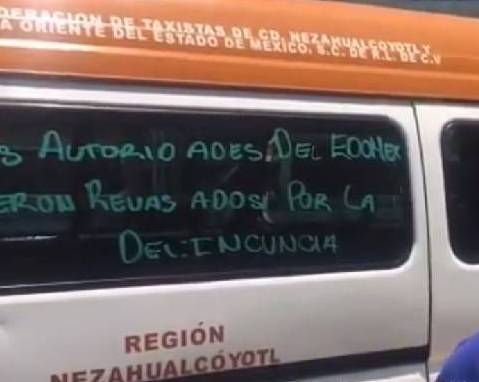 DERACIÓN DE TAXISTAS DE CD. NEZAHUALCOYOTL Y
A ORIENTE DEL ESTADO DE MÉXICO, S.C. DE R.L. DE C.V
S AUTORIDADES DEL EDOMEX
ERON REVASADOS POR LA
DELINCUNCIA
REGIÓN
NEZAHUALCÓYOTL